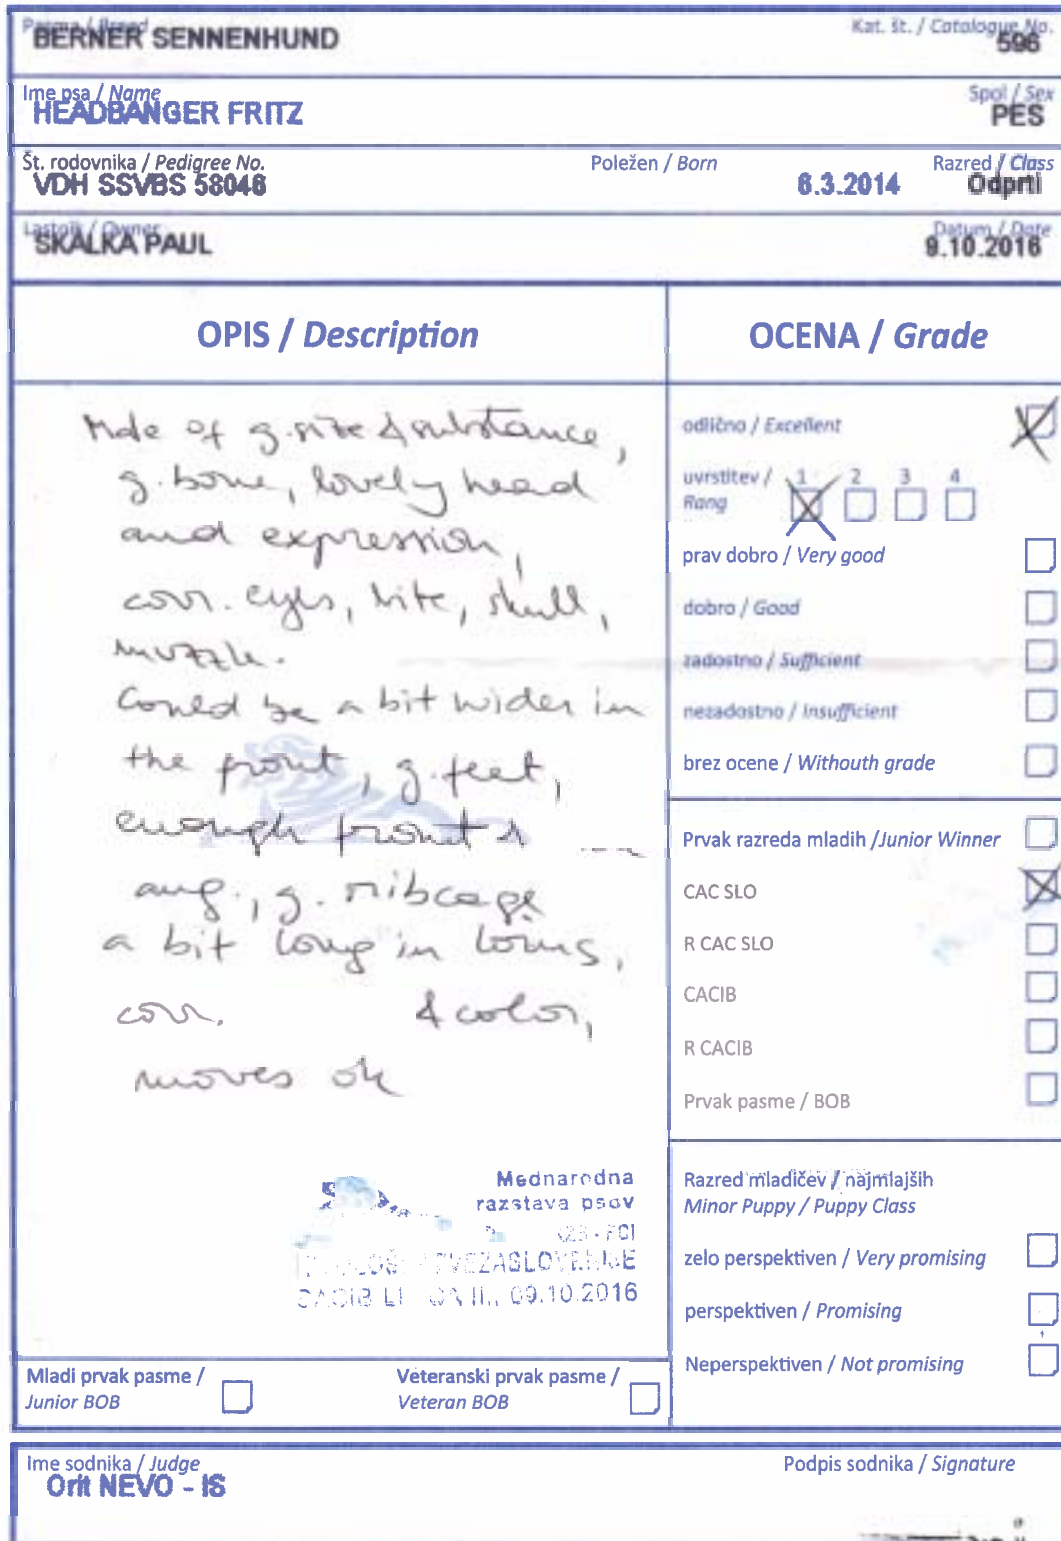 Pasma / Breed
BERNER SENNENHUND
Kat. št. / Catalogue No.
596
Ime psa / Name
HEADBANGER FRITZ
Spol / Sex
PES
Št. rodovnika / Pedigree No.
VDH SSVBS 58046
Poležen / Born
6.3.2014
Razred / Class
Odprti
Lastnik / Owner
SKALKA PAUL
Datum / Date
9.10.2016
OPIS / Description
Male of g. size & substance,
g. bone, lovely head
and expression,
corr. eyes, bite, skull,
muzzle.
Could be a bit wider in
the front, g. feet,
enough front &
ang., g. ribcage
a bit long in loins,
corr. & color,
moves ok
Mednarodna
razstava psov
09.10.2016
Mladi prvak pasme /
Junior BOB
Veteranski prvak pasme /
Veteran BOB
OCENA / Grade
odlično / Excellent
uvrstitev / 1 2 3 4
Rang
prav dobro / Very good
dobro / Good
zadostno / Sufficient
nezadostno / Insufficient
brez ocene / Withouth grade
Prvak razreda mladih /Junior Winner
CAC SLO
R CAC SLO
CACIB
R CACIB
Prvak pasme / BOB
Razred mladičev / najmlajših
Minor Puppy / Puppy Class
zelo perspektiven / Very promising
perspektiven / Promising
Neperspektiven / Not promising
Ime sodnika / Judge
Orit NEVO - IS
Podpis sodnika / Signature